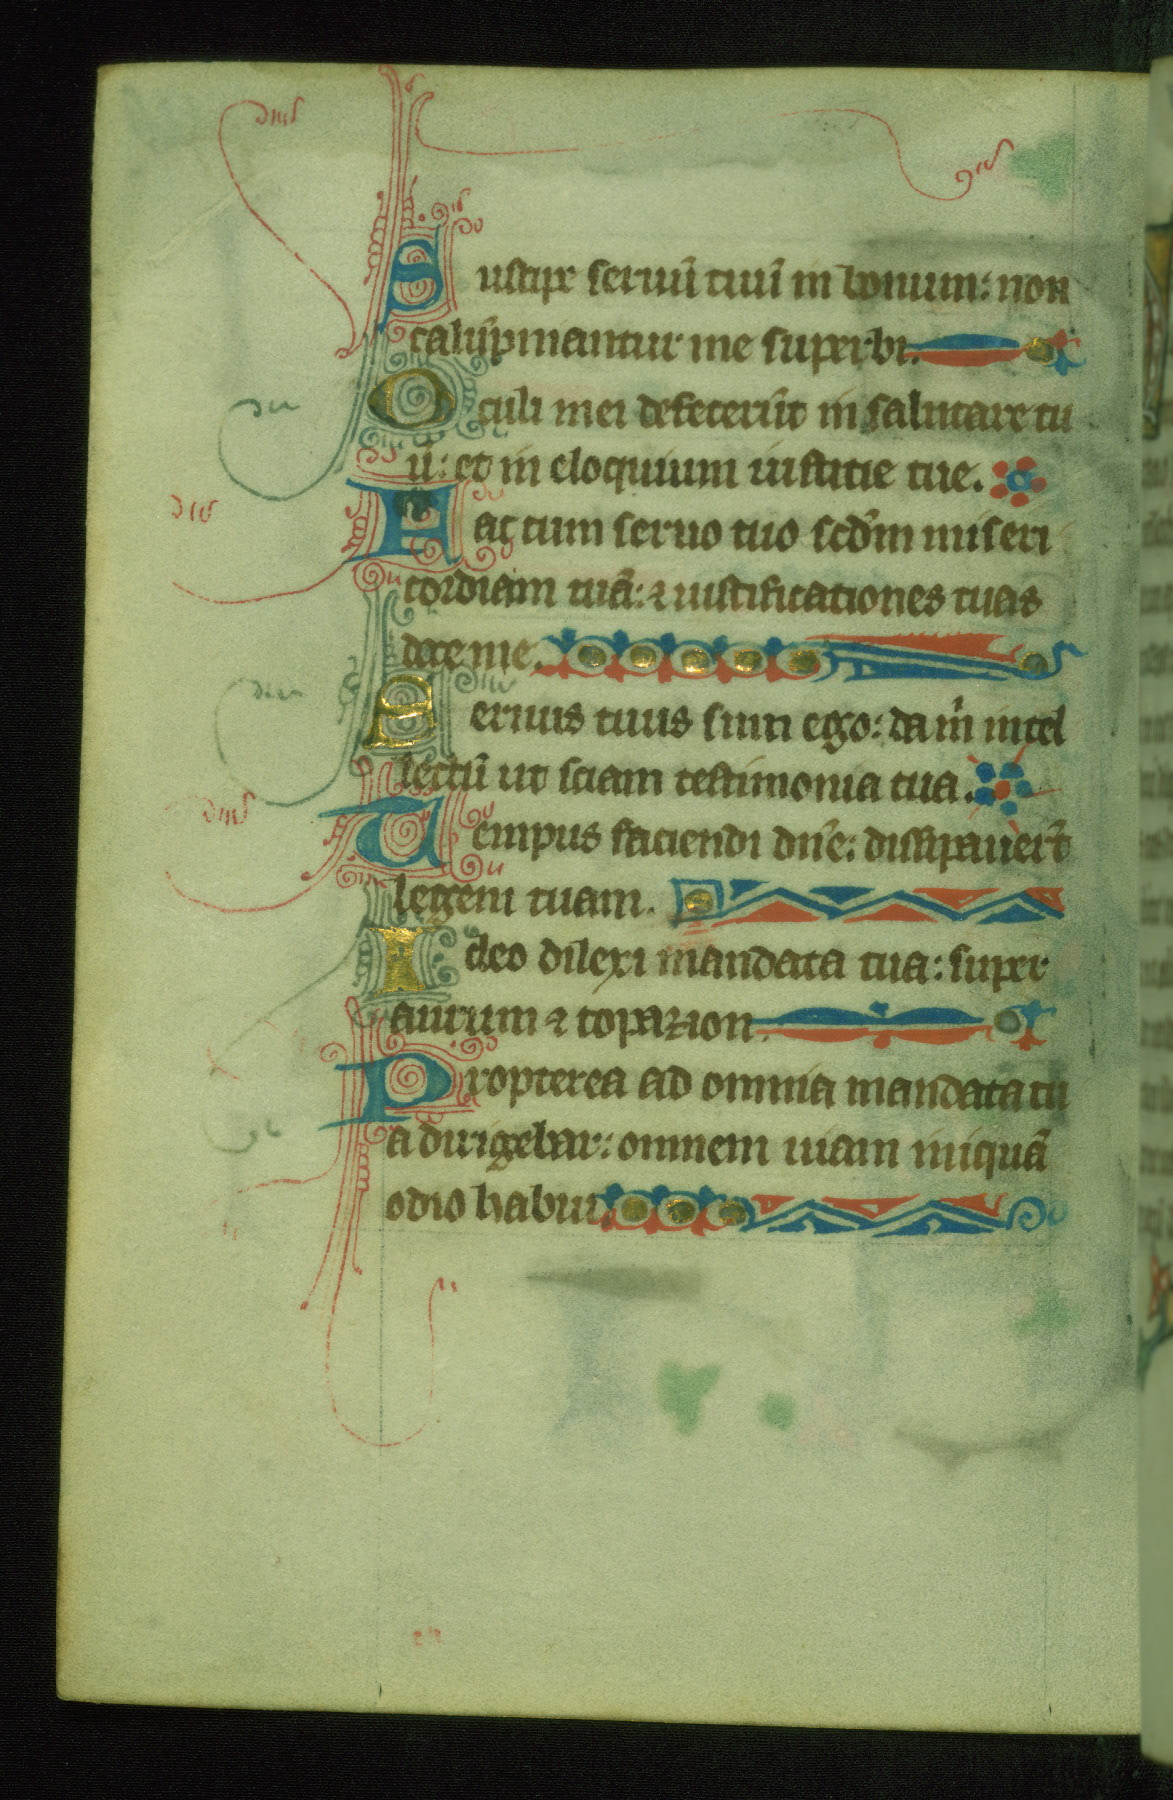 Suscipe seruũ tuũ in bonum: non
calũpniantur me superbi.
Oculi mei defecerũt in salutare tu
ũ: et in eloquium iusticie tue.
Fac cum seruo tuo scd̃m miseri
cordiam tuã: ⁊ iustificationes tuas
doce me.
Seruus tuus sum ego: da m̃ intel
lectũ ut sciam testimonia tua.
Tempus faciendi dñe: dissipauer̃t
legem tuam.
Ideo dilexi mandata tua: super
aurum ⁊ topazion.
Propterea ad omnia mandata tu
a dirigebar: omnem uiam iniquã
odio habui.